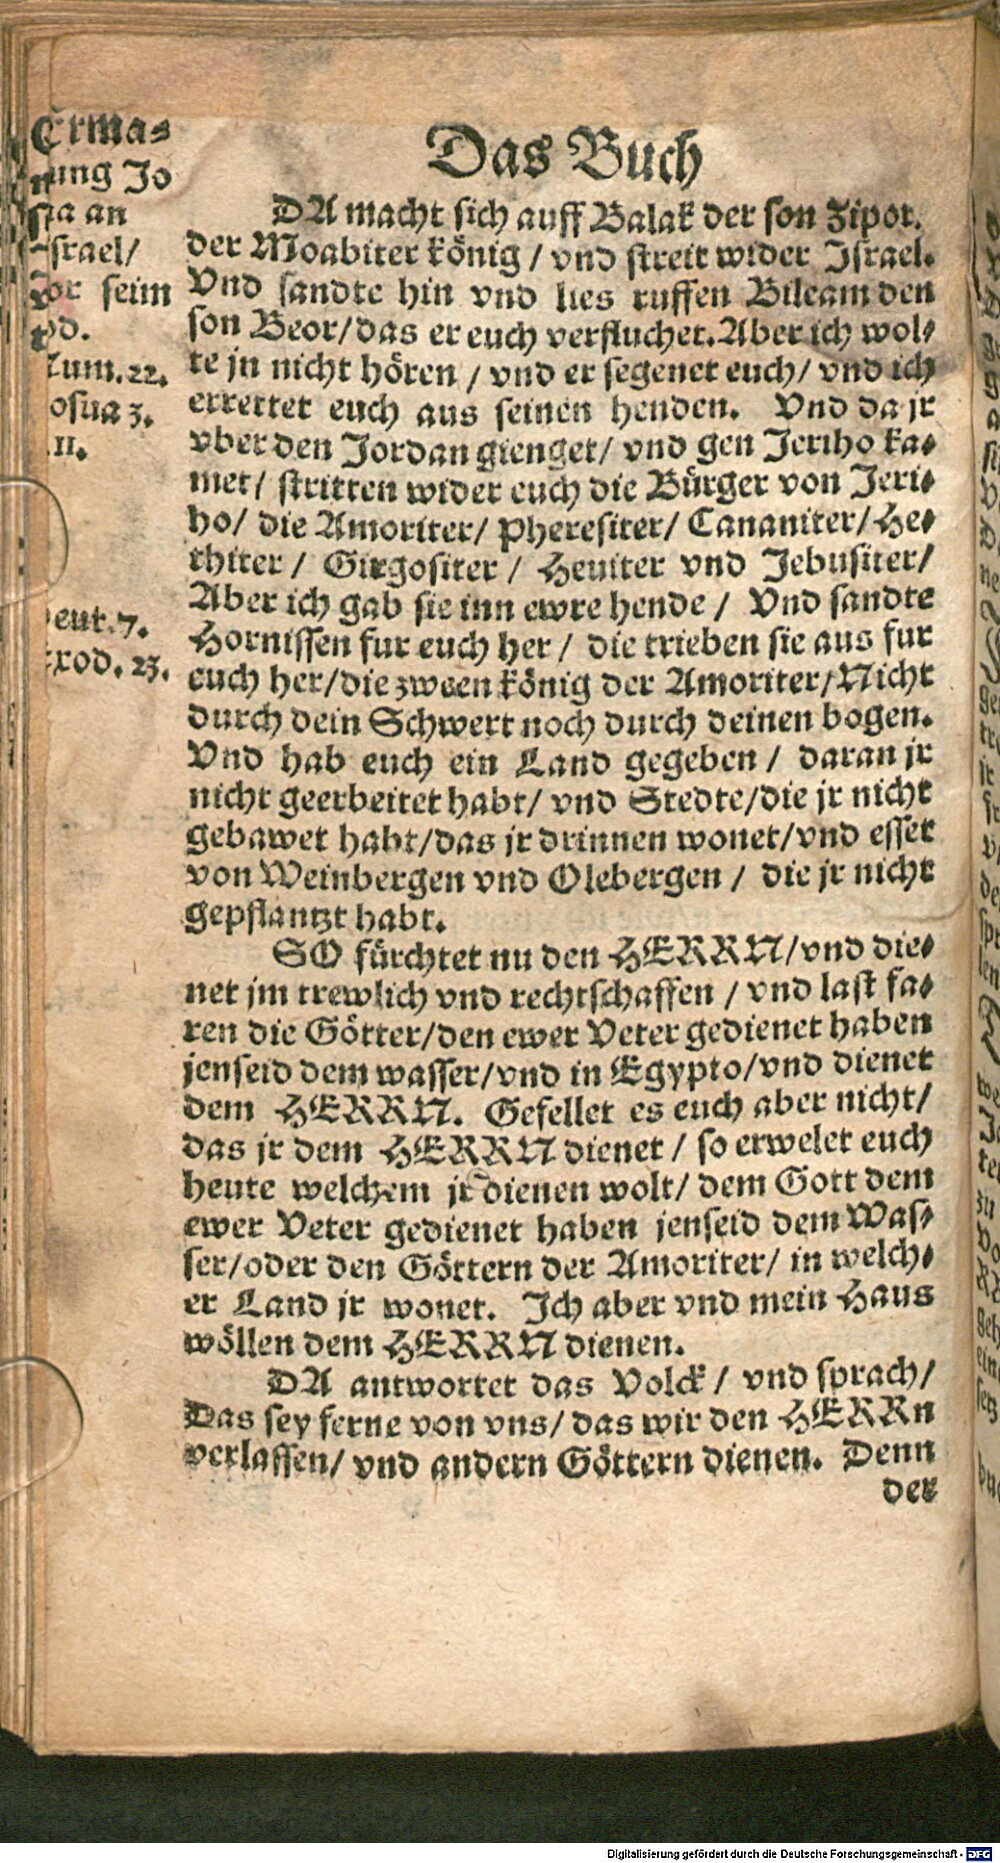 Das Buch
Erma-
nung Jo
sua an
Israel/
vor seim
tod.
Num. 22.
Josua 3.
11.
Deut. 7.
Exod. 23.
DA macht sich auff Balak der son Zipor.
der Moabiter könig / vnd streit wider Israel.
Vnd sandte hin vnd lies ruffen Bileam den
son Beor/das er euch verfluchet. Aber ich wol-
te jn nicht hören / vnd er segenet euch/ vnd ich
errettet euch aus seinen henden. Vnd da jr
vber den Jordan gienget/ vnd gen Jeriho ka-
met/ stritten wider euch die Bürger von Jeri-
ho/ die Amoriter/ Pheresiter/ Cananiter/ He-
thiter / Girgositer / Heuiter vnd Jebusiter/
Aber ich gab sie inn ewre hende / Vnd sandte
Hornissen fur euch her / die trieben sie aus fur
euch her/die zween könig der Amoriter/Nicht
durch dein Schwert noch durch deinen bogen.
Vnd hab euch ein Land gegeben / daran jr
nicht geerbeitet habt/ vnd Stedte/die jr nicht
gebawet habt/das jr drinnen wonet/vnd esset
von Weinbergen vnd Olebergen / die jr nicht
gepflantzt habt.
SO fürchtet nu den HERRN/vnd die-
net jm trewlich vnd rechtschaffen / vnd last fa-
ren die Götter/den ewer Veter gedienet haben
jenseid dem wasser/vnd in Egypto/vnd dienet
dem HERRN. Gefellet es euch aber nicht/
das jr dem HERRN dienet / so erwelet euch
heute welchem jr dienen wolt/ dem Gott dem
ewer Veter gedienet haben jenseid dem Was-
ser/oder den Göttern der Amoriter/ in welch-
er Land jr wonet. Ich aber vnd mein Haus
wöllen dem HERRN dienen.
DA antwortet das Volck / vnd sprach/
Das sey ferne von vns/ das wir den HERRn
verlassen/ vnd andern Göttern dienen. Denn
der
Digitalisierung gefördert durch die Deutsche Forschungsgemeinschaft - DFG